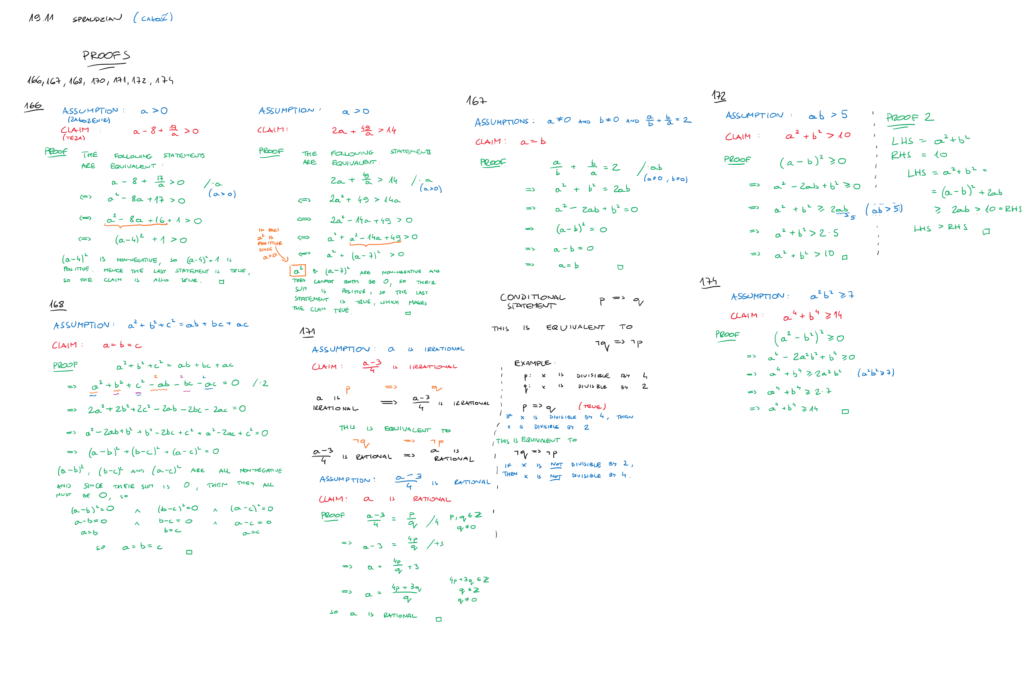 19.11 SPRAWDZIAN (CAŁOŚĆ)
PROOFS
166, 167, 168, 170, 171, 172, 174
166
ASSUMPTION: a > 0
(ZAŁOŻENIE)
CLAIM: a - 8 + 17/a > 0
(TEZA)
PROOF THE FOLLOWING STATEMENTS
ARE EQUIVALENT:
a - 8 + 17/a > 0 / · a
(a > 0)
<=> a² - 8a + 17 > 0
<=> a² - 8a + 16 + 1 > 0
<=> (a-4)² + 1 > 0
(a-4)² IS NON-NEGATIVE, SO (a-4)² + 1 IS
POSITIVE. HENCE THE LAST STATEMENT IS TRUE,
SO THE CLAIM IS ALSO TRUE. □
ASSUMPTION: a > 0
CLAIM: 2a + 49/a > 14
PROOF THE FOLLOWING STATEMENTS
ARE EQUIVALENT:
2a + 49/a > 14 / · a
(a > 0)
<=> 2a² + 49 > 14a
<=> 2a² - 14a + 49 > 0
<=> a² + a² - 14a + 49 > 0
<=> a² + (a-7)² > 0
IN FACT
a² IS
POSITIVE
SINCE
a > 0
a² & (a-7)² ARE NON-NEGATIVE AND
THEY CANNOT BOTH BE 0, SO THEIR
SUM IS POSITIVE, SO THE LAST
STATEMENT IS TRUE, WHICH MAKES
THE CLAIM TRUE □
167
ASSUMPTIONS: a ≠ 0 AND b ≠ 0 AND a/b + b/a = 2
CLAIM: a = b
PROOF a/b + b/a = 2 / · ab
(a ≠ 0, b ≠ 0)
=> a² + b² = 2ab
=> a² - 2ab + b² = 0
=> (a-b)² = 0
=> a - b = 0
=> a = b □
172
ASSUMPTION: ab > 5
CLAIM: a² + b² > 10
PROOF (a-b)² ≥ 0
=> a² - 2ab + b² ≥ 0
=> a² + b² ≥ 2ab (ab > 5)
>5
=> a² + b² > 2 · 5
=> a² + b² > 10 □
PROOF 2
LHS = a² + b²
RHS = 10
LHS = a² + b² =
= (a-b)² + 2ab
≥ 2ab > 10 = RHS
LHS > RHS □
168
ASSUMPTION: a² + b² + c² = ab + bc + ac
CLAIM: a = b = c
PROOF a² + b² + c² = ab + bc + ac
=> a² + b² + c² - ab - bc - ac = 0 / · 2
=> 2a² + 2b² + 2c² - 2ab - 2bc - 2ac = 0
=> a² - 2ab + b² + b² - 2bc + c² + a² - 2ac + c² = 0
=> (a-b)² + (b-c)² + (a-c)² = 0
(a-b)², (b-c)² AND (a-c)² ARE ALL NON-NEGATIVE
AND SINCE THEIR SUM IS 0, THEN THEY ALL
MUST BE 0, SO
(a-b)² = 0 ∧ (b-c)² = 0 ∧ (a-c)² = 0
a-b = 0 ∧ b-c = 0 ∧ a-c = 0
a = b b = c a = c
SO a = b = c □
171
ASSUMPTION: a IS IRRATIONAL
CLAIM: a-3/4 IS IRRATIONAL
p => q
a IS IRRATIONAL => a-3/4 IS IRRATIONAL
THIS IS EQUIVALENT TO
¬q => ¬p
a-3/4 IS RATIONAL => a IS RATIONAL
ASSUMPTION: a-3/4 IS RATIONAL
CLAIM: a IS RATIONAL
PROOF a-3/4 = p/q / · 4 p, q ∈ Z
q ≠ 0
=> a - 3 = 4p/q / +3
=> a = 4p/q + 3
=> a = 4p + 3q/q 4p + 3q ∈ Z
q ∈ Z
q ≠ 0
SO a IS RATIONAL □
CONDITIONAL
STATEMENT p => q
THIS IS EQUIVALENT TO
¬q => ¬p
EXAMPLE:
p: x IS DIVISIBLE BY 4
q: x IS DIVISIBLE BY 2
p => q (TRUE)
IF x IS DIVISIBLE BY 4, THEN
x IS DIVISIBLE BY 2
THIS IS EQUIVALENT TO
¬q => ¬p
IF x IS NOT DIVISIBLE BY 2,
THEN x IS NOT DIVISIBLE BY 4.
174
ASSUMPTION: a²b² ≥ 7
CLAIM: a⁴ + b⁴ ≥ 14
PROOF (a² - b²)² ≥ 0
=> a⁴ - 2a²b² + b⁴ ≥ 0
=> a⁴ + b⁴ ≥ 2a²b² (a²b² ≥ 7)
=> a⁴ + b⁴ ≥ 2 · 7
=> a⁴ + b⁴ ≥ 14 □